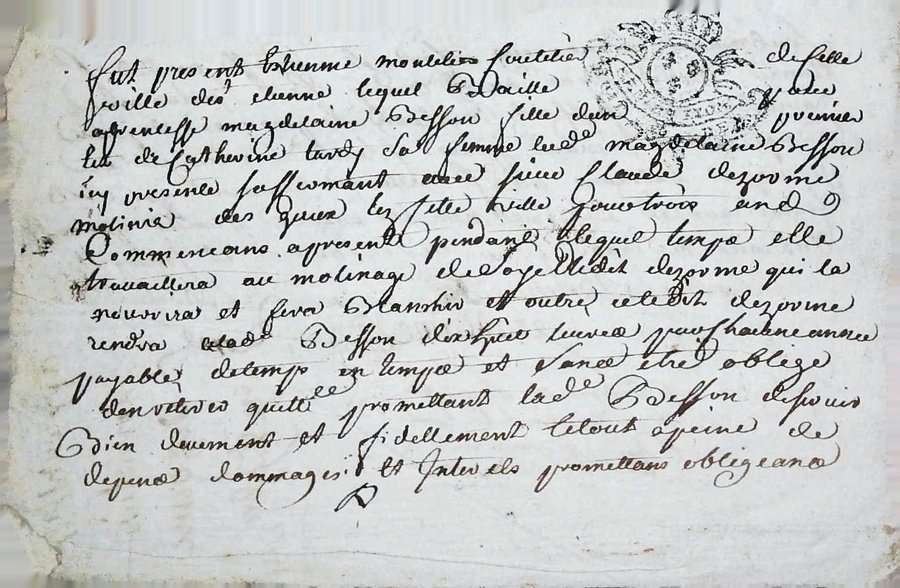 fut present Etienne montelier coutelier de cette
ville de st etienne lequel Baille pour
aprentisse magdelaine Besson fille d'un premier
lit de Catherine tardy Sa femme lad.e magdelaine Besson
icy presente avec sieur Claude dezorme
molinier de cette ville pour trois ans
Commencans apresent pendant lequel temps elle
travaillera au molinage de Soye ledit dezorme qui la
nourrira et fera Blanchir et outre ce ledit dezorme
rendra a lad.e Besson dix huit livres par Chacune annee
payable de temps en temps et Sans etre oblige
d'en retirer quitt.ce promettant lad.e Besson deservir
Bien deuement et fidellement le tout a peine de
depens dommages Et Interets promettans obligeans